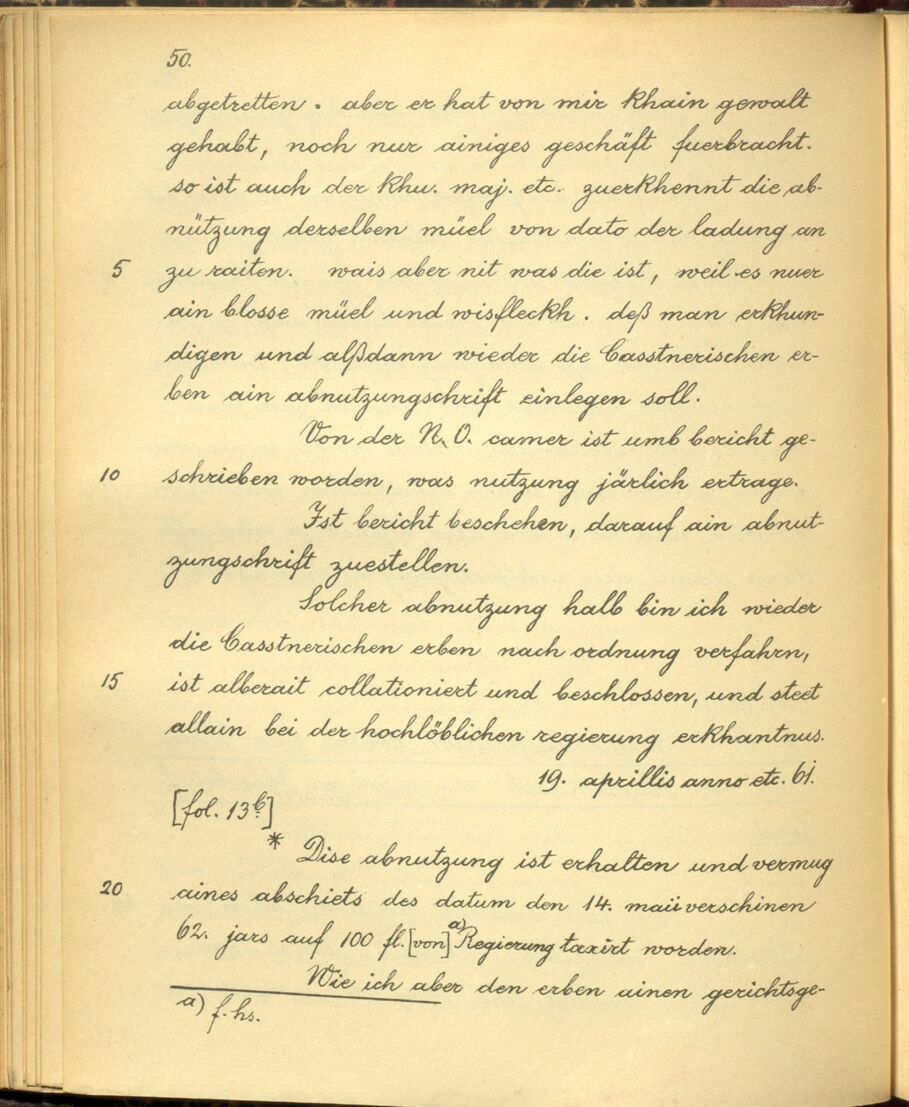 50.
abgetretten. aber er hat von mir khain gewalt
gehabt, noch nur ainiges geschäft fuerbracht.
so ist auch der khu. maj. etc. zuerkhennt die ab-
nützung derselben müel von dato der ladung an
5 zu raiten. wais aber nit was die ist, weil es nuer
ain blosse müel und wisfleckh. deß man erkhun-
digen und alßdann wieder die Casstnerischen er-
ben ain abnutzungschrift einlegen soll.
Von der N. O. camer ist umb bericht ge-
10 schrieben worden, was nutzung järlich ertrage.
Ist bericht beschehen, darauf ain abnut-
zungschrift zuestellen.
Solcher abnutzung halb bin ich wieder
die Casstnerischen erben nach ordnung verfahrn,
15 ist alberait collationiert und beschlossen, und steet
allain bei der hochlöblichen regierung erkhantnus.
19. aprillis anno etc. 61.
[fol. 13b]
* Dise abnutzung ist erhalten und vermug
20 aines abschiets des datum den 14. maii verschinen
62. jars auf 100 fl. [von] a) Regierung taxirt worden.
Wie ich aber den erben ainen gerichtsge-
a) f. hs.